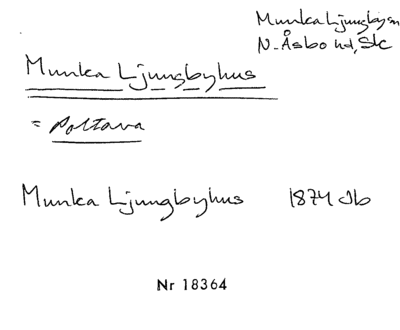 Munka Ljungby sn
N. Åsbo hd, Skc
Munka Ljungbyhus
= Poltava
Munka Ljungbyhus 1874 Jb
Nr 18364